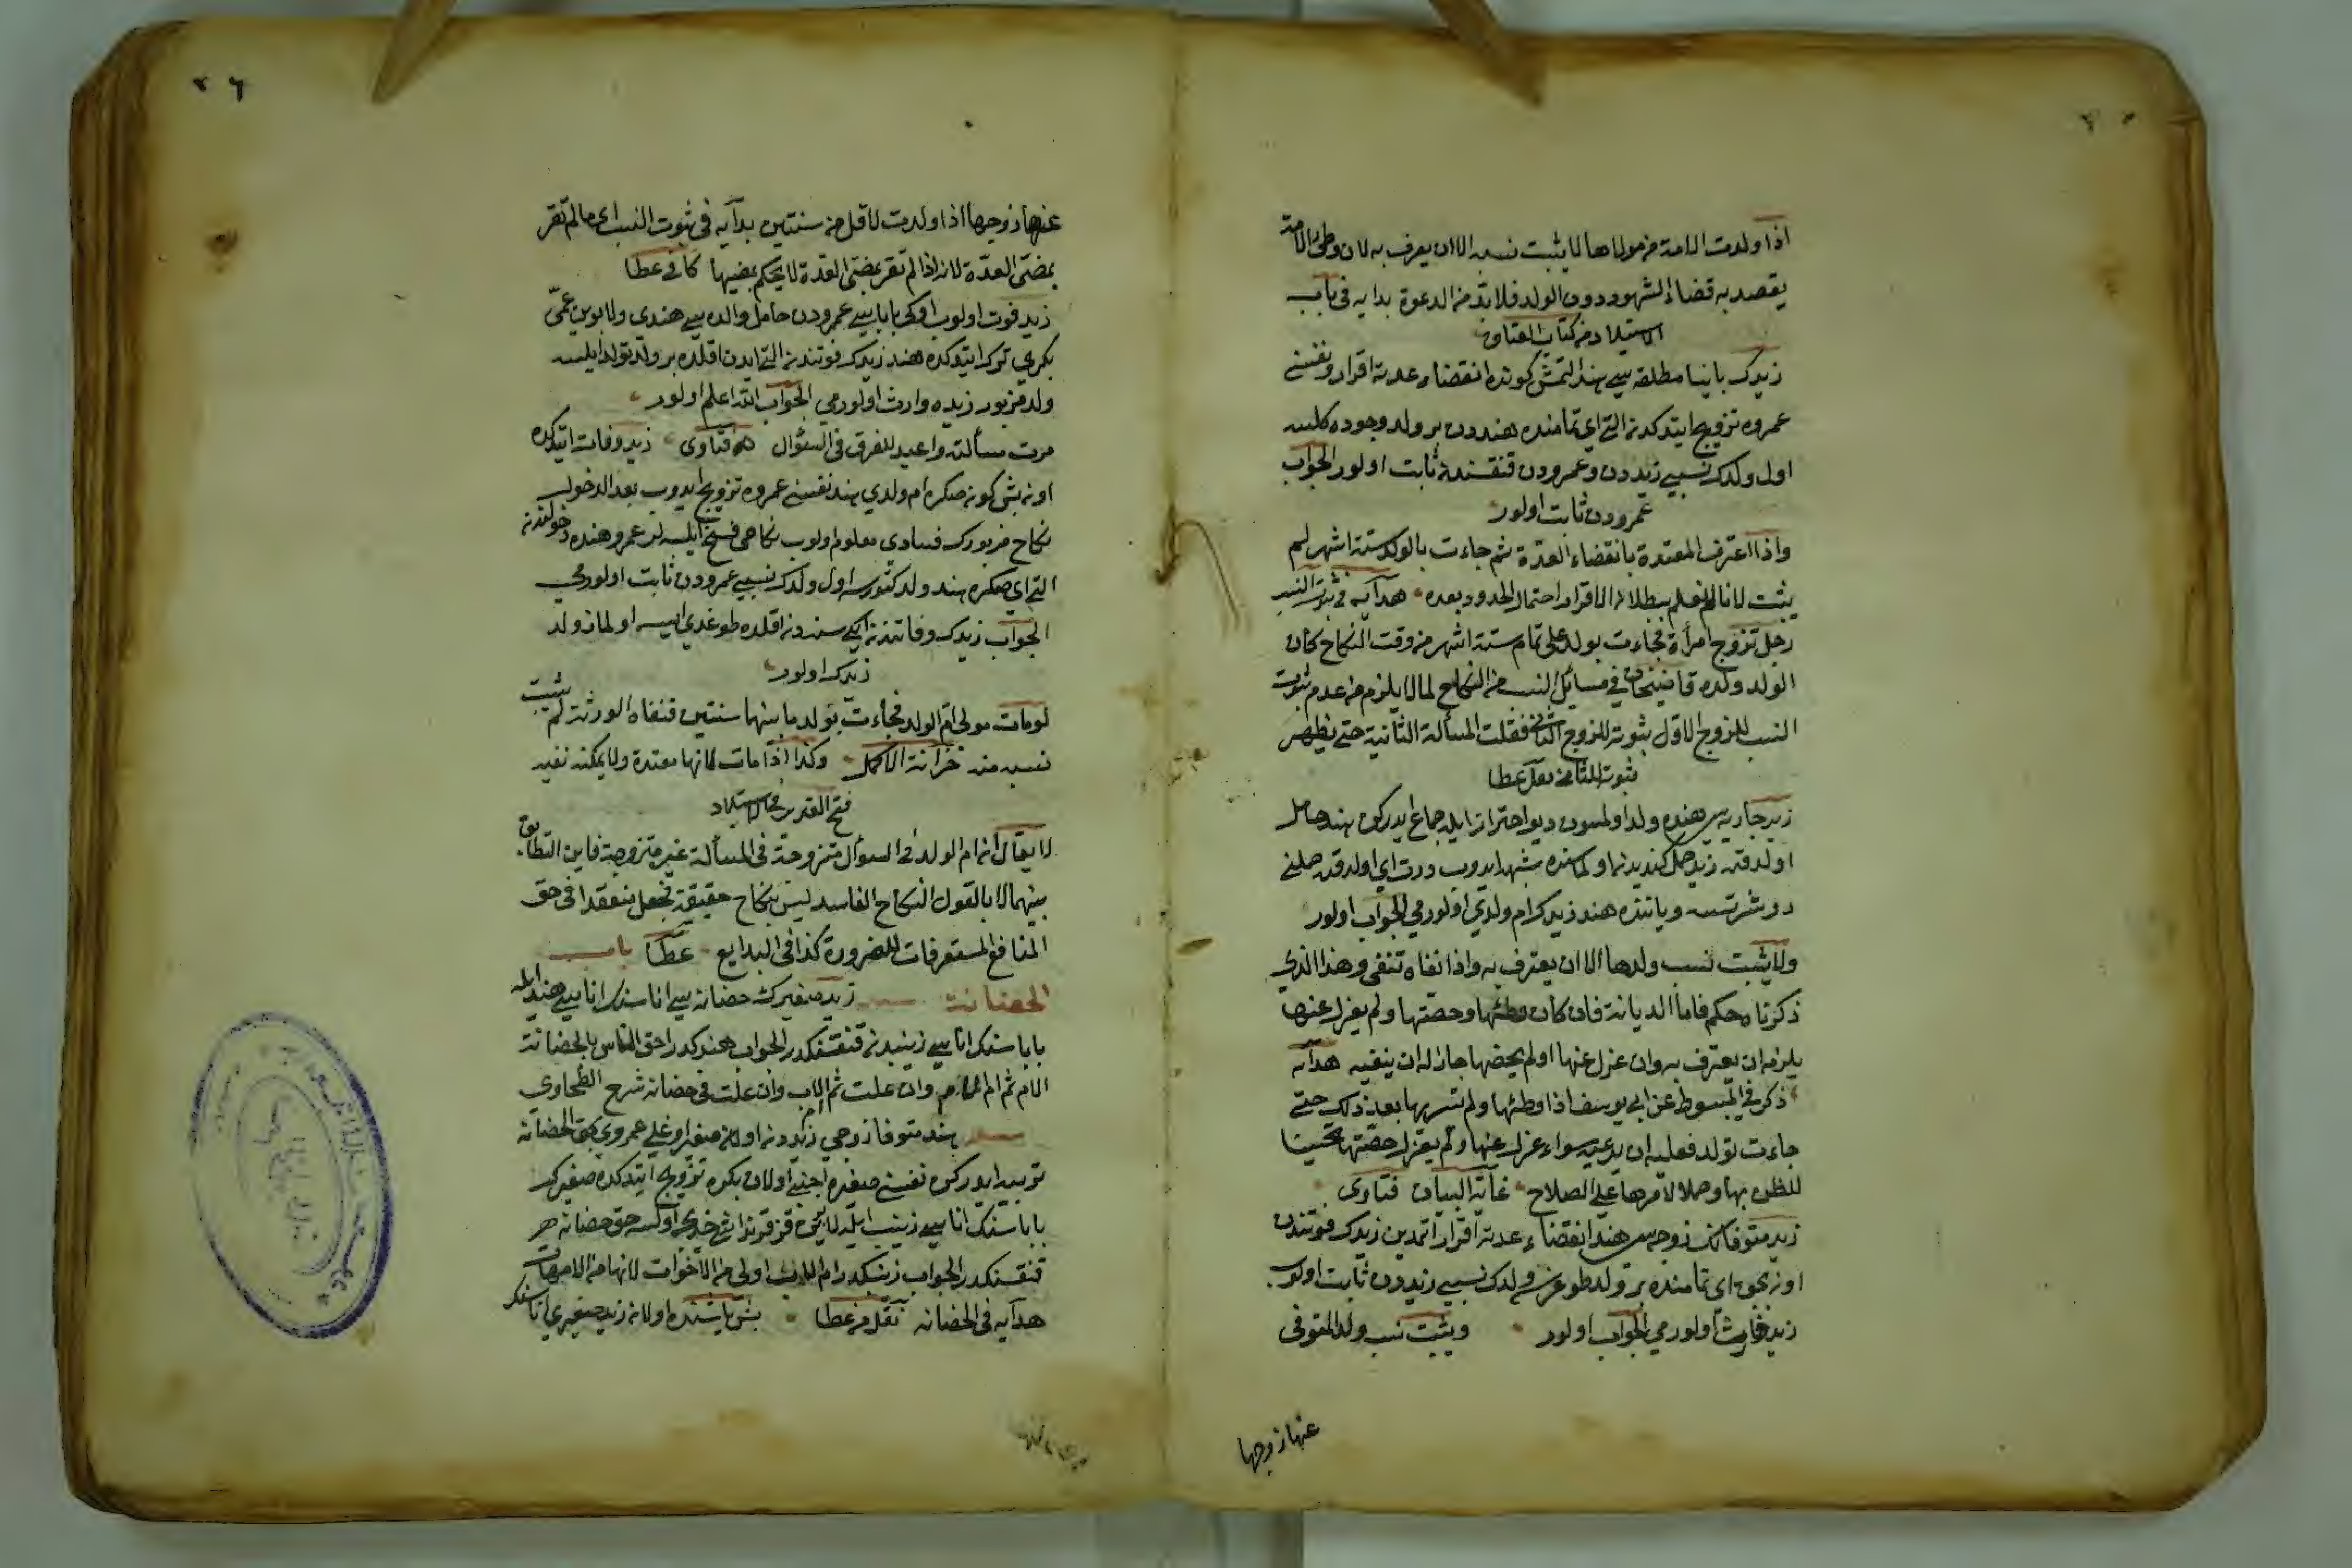 اذا ولدت الامة من مولاها لا يثبت نسبه الا ان يعرف به لان وطئ الامة
يقصد به قضاء الشهوة دون الولد فلا بد من الدعوة بدايه فى باب
الاستيلاد من كتاب العتاق
زيدك باينا مطلقه سى هند التمش كونده انقضاء عدته اقرار و نفسنى
عمروه تزويج ايتدكدنه التى اى تمامنده هندون بر ولد وجوده كلسه
اول ولدك نسبى زيددن وعمرودن قنقسندن ثابت اولور الجواب
عمرودن ثابت اولور
واذا اعترف المعتدة بانقضاء العدة ثم جاءت بالولد ستة اشهر لم
يثبت لانا لم نعلم ببطلان الاقرار احتمال الحدود بعده هدايه فى ثبوت النسب
رجل تزوج امرأة فجاءت بولد على تمام ستة اشهر من وقت النكاح كان
الولد ولده قاضيخان فى مسائل النسب من النكاح لما لا يلزم من عدم ثبوت
النسب للزوج الاول ثبوته للزوج الثانى فقلت المسألة الثانية حتى يظهر
ثبوته للثانى نقل عطا
زيد جاريه سى هنده ولد اولمسون ديو احترازا يله جماع ايدركن هند حامل
اولدقده زيد حمل كنديدنه اولماسنده شبهه ايدوب درت اى اولدقده حملنى
دوشرتسه وياتنده هند زيدك ام ولدى اولورمى الجواب اولور
ولا يثبت نسب ولدها الا ان يعترف به واذا نفاه تنفى وهذا الذى
ذكرناه حكم فاما الديانة فان كان وطئها وحصنها ولم يعزل عنها
يلزمه ان يعترف به وان عزل عنها او لم يحصنها جاز له ان ينفيه هدايه
ذكر فى المبسوط عن ابى يوسف اذا وطئها ولم تسر بها بعد ذلك حتى
جاءت بولد فعليه ان يدعيه سواء عزل عنها ولم يعزل حصنها تحسينا
للظن بها وحملا لامرها على الصلاح غاية البيان فتاوى
زيد متوفانك زوجه سى هند انقضاء عدته اقرار اتمدين زيدك فوتندن
اون طقوز اى تمامنده بر ولد طوغرسه ولدك نسبى زيددن ثابت اولوب
زيده وارث اولورمى الجواب اولور ويثبت نسب ولد المتوفى
عنها زوجها
عنها زوجها اذا ولدت لاقل من سنتين بدآيه فى ثبوت النسب اى ما لم تقر
بمضى العدة لانه اذا لم تقر بمضى العدة لا يحكم بمضيها كافى عطا
زيد فوت اولوب اوكى باباسى عمرودن حامل والده سى هندى ولابوين عمى
بكرى ترك ايتدكده هند زيدك فوتندنه التى ايدن اقلده بر ولد تولد ايلسه
ولد مزبور زيده وارث اولورمى الجواب الله اعلم اولور
مرت مسألته واعيد للفرق فى السؤال فتاوى زيد وفات ايتدكده
اونه بش كونه صكره ام ولدى هند نفسنى عمروه تزويج ايدوب بعد الدخول
نكاح مزبورك فسادى معلوم اولوب نكاحى فسخ ايلسه لر عمرو هنده دخولندنه
التى اى صكره هند ولد كتورسه اول ولدك نسبى عمرودن ثابت اولورمى
الجواب زيدك وفاتندنه ايكى سنه دنه اقلده طوغدى ايسه اولماز ولد
زيدك اولور
لو مات مولى ام الولد فجاءت بولد ما بينهما سنتين فنفاه الورثة لم يثبت
نسبه منه خزانة الاكمل وكذا اذا مات لانها معتدة ولا يمكنه نفيه
فتح القدير فى الاستيلاد
لا يقال ان ام الولد فى السؤال متزوجة فى المسألة غير متزوجة فاين التطابق
بينهما لانا نقول النكاح الفاسد ليس بنكاح حقيقة فجعل منعقدا فى حق
المنافع المستعرفات للضرورة كذا فى البدايع عطا باب
الحضانة زيد صغيرك حضانه سى اناسنك اناسى هند ايله
باباسنك اناسى زينبدنه قنقسنكدر الجواب هندكدر احق الناس بالحضانة
الام ثم ام الام وان علت ثم ام الاب وان علت فى حضانه شرح الطحاوى
هند متوفا زوجى زيددنه اولان صغير اوغلى عمروى بحق الحضانه
تربيه ايدركن نفسنى صغيره اجنبى اولان بكره تزويج ايتدكده صغيرك
باباسنك اناسى زينب ايله لابوين قز قرنداشى خديجه اوكسه حق حضانه هر
قنقسنكدر الجواب زينبكدر ام الاب اولى من الاخوات لانها من الامهات
هدآيه فى الحضانه نقل من عطا بش ياشنده اولانه زيد صغيرى اناسنك